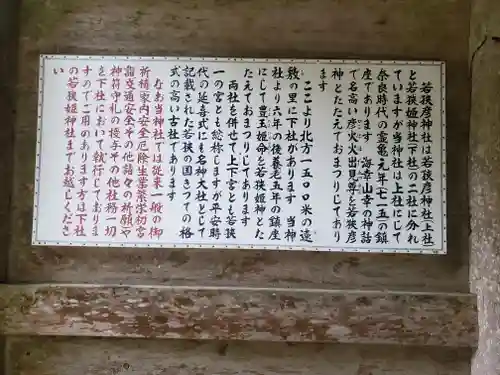 若狭彦神社は若狭彦神社(上社)
と若狭姫神社(下社)の二社に分れ
ていますが当神社は上社にして
奈良時代の霊亀元年(七一五)の鎮
座であります 海幸山幸の神話
で名高い彦火火出見尊を若狭彦
神とたたえておまつりしてあり
ます
ここより北方一五〇〇米の遠
敷の里に下社があります 当神
社より六年の後養老五年の鎮座
にして豊玉姫命を若狭姫神とた
たえておまつりしてあります
両社を併せて上下宮とも若狭
一の宮とも総称しますが平安時
代の延喜式にも名神大社として
記載された若狭の国きっての格
式の高い古社であります
なお当神社では従来一般の御
祈祷家内安全厄除生業繁栄初宮
詣交通安全その他諸々の祈願や
神符守札の授与その他社務一切
を下社において執行しておりま
すのでご用のあります方は下社
の若狭姫神社までお越しくださ
い